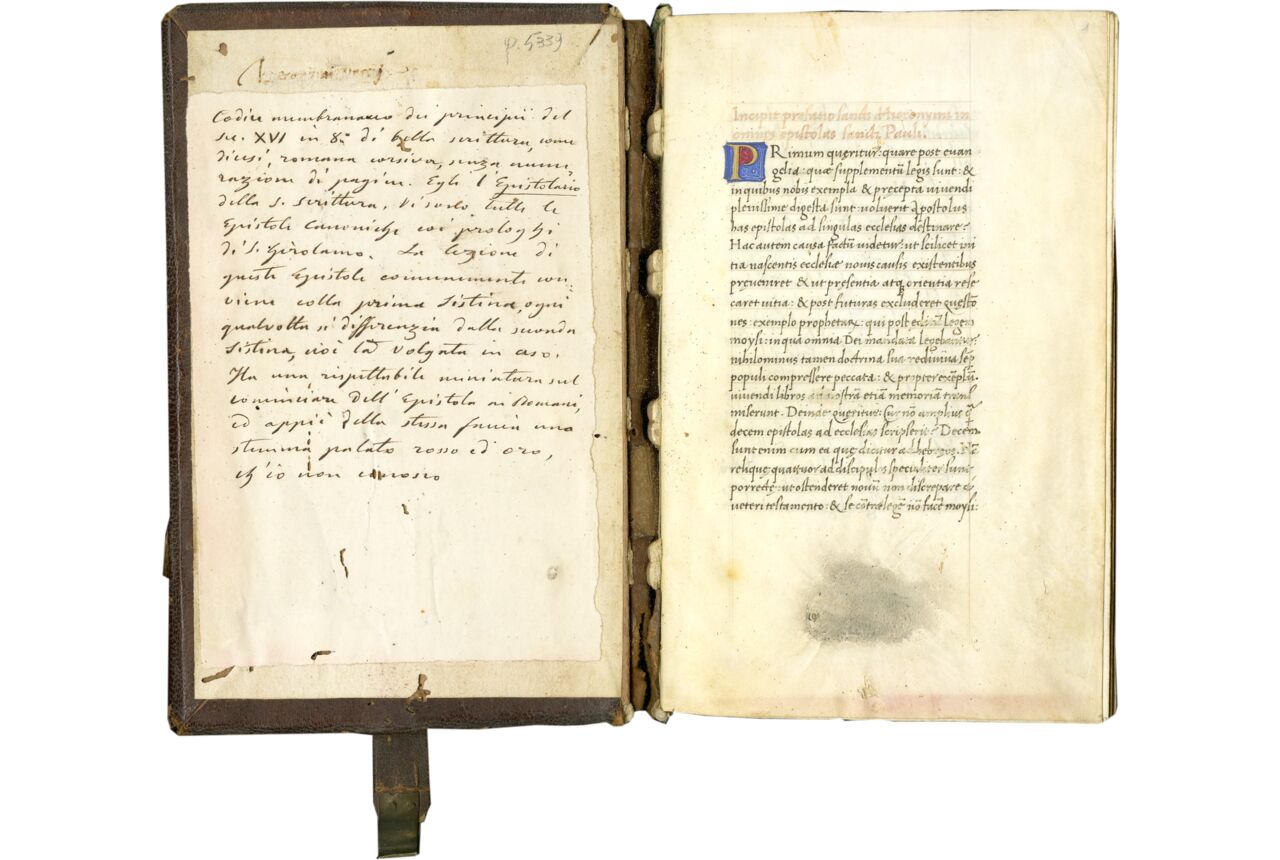 φ. 5339
Codice membranaceo dei principii del
sec. XVI in 8.º di bella scrittura, come
dicesi, romana corsiva, senza nume,
razione di pagine. Egli è l'Epistolario
della S. Scrittura. Vi sono tutte le
Epistole Canoniche coi prologhi
di S. Girolamo. La lezione di
queste Epistole comunemente con,
viene colla prima Sistina, ogni
qualvolta si differenzia dalla seconda
Sistina, cioè la Volgata in caso.
Ha una rispettabile miniatura sul
cominciare dell'Epistola ai Romani,
ed appiè della stessa faccia uno
stemma palato rosso ed oro,
ch'io non conosco
1
Incipit prefatio sancti Hieronymi in
omnes epistolas sancti Pauli.
PRimum queritur: quare post euan
gelia: quæ supplementū legis sunt: &
in quibus nobis exempla & precepta uiuendi
plenissime digesta sunt: uoluerit apostolus
has epistolas ad singulas ecclesias destinare.
Hac autem causa factū uidetur: ut scilicet ini
tia nascentis ecclesiæ nouis causis existentibus
preueniret & ut presentia atq; orientia rese
caret uitia: & post futuras excluderet questio
nes: exemplo prophetaꝝ: qui post editā legem
moysi: in qua omnia Dei mandata legebantur:
nihilominus tamen doctrina sua rediuiua sēp
populi compressere peccata: & propter exēplū
uiuendi libros ad nostrā etiā memoriā trans
miserunt. Deinde queritur: Cur nō amplius q̄
decem epistolas ad ecclesias scripserit. Decem
sunt enim cum ea que dicitur ad hebreos. Nā
relique quattuor ad discipulos specialiter sunt
porrecte: ut ostenderet nouū non discrepare a
ueteri testamento: & se cōtra legē nō facere moysi: